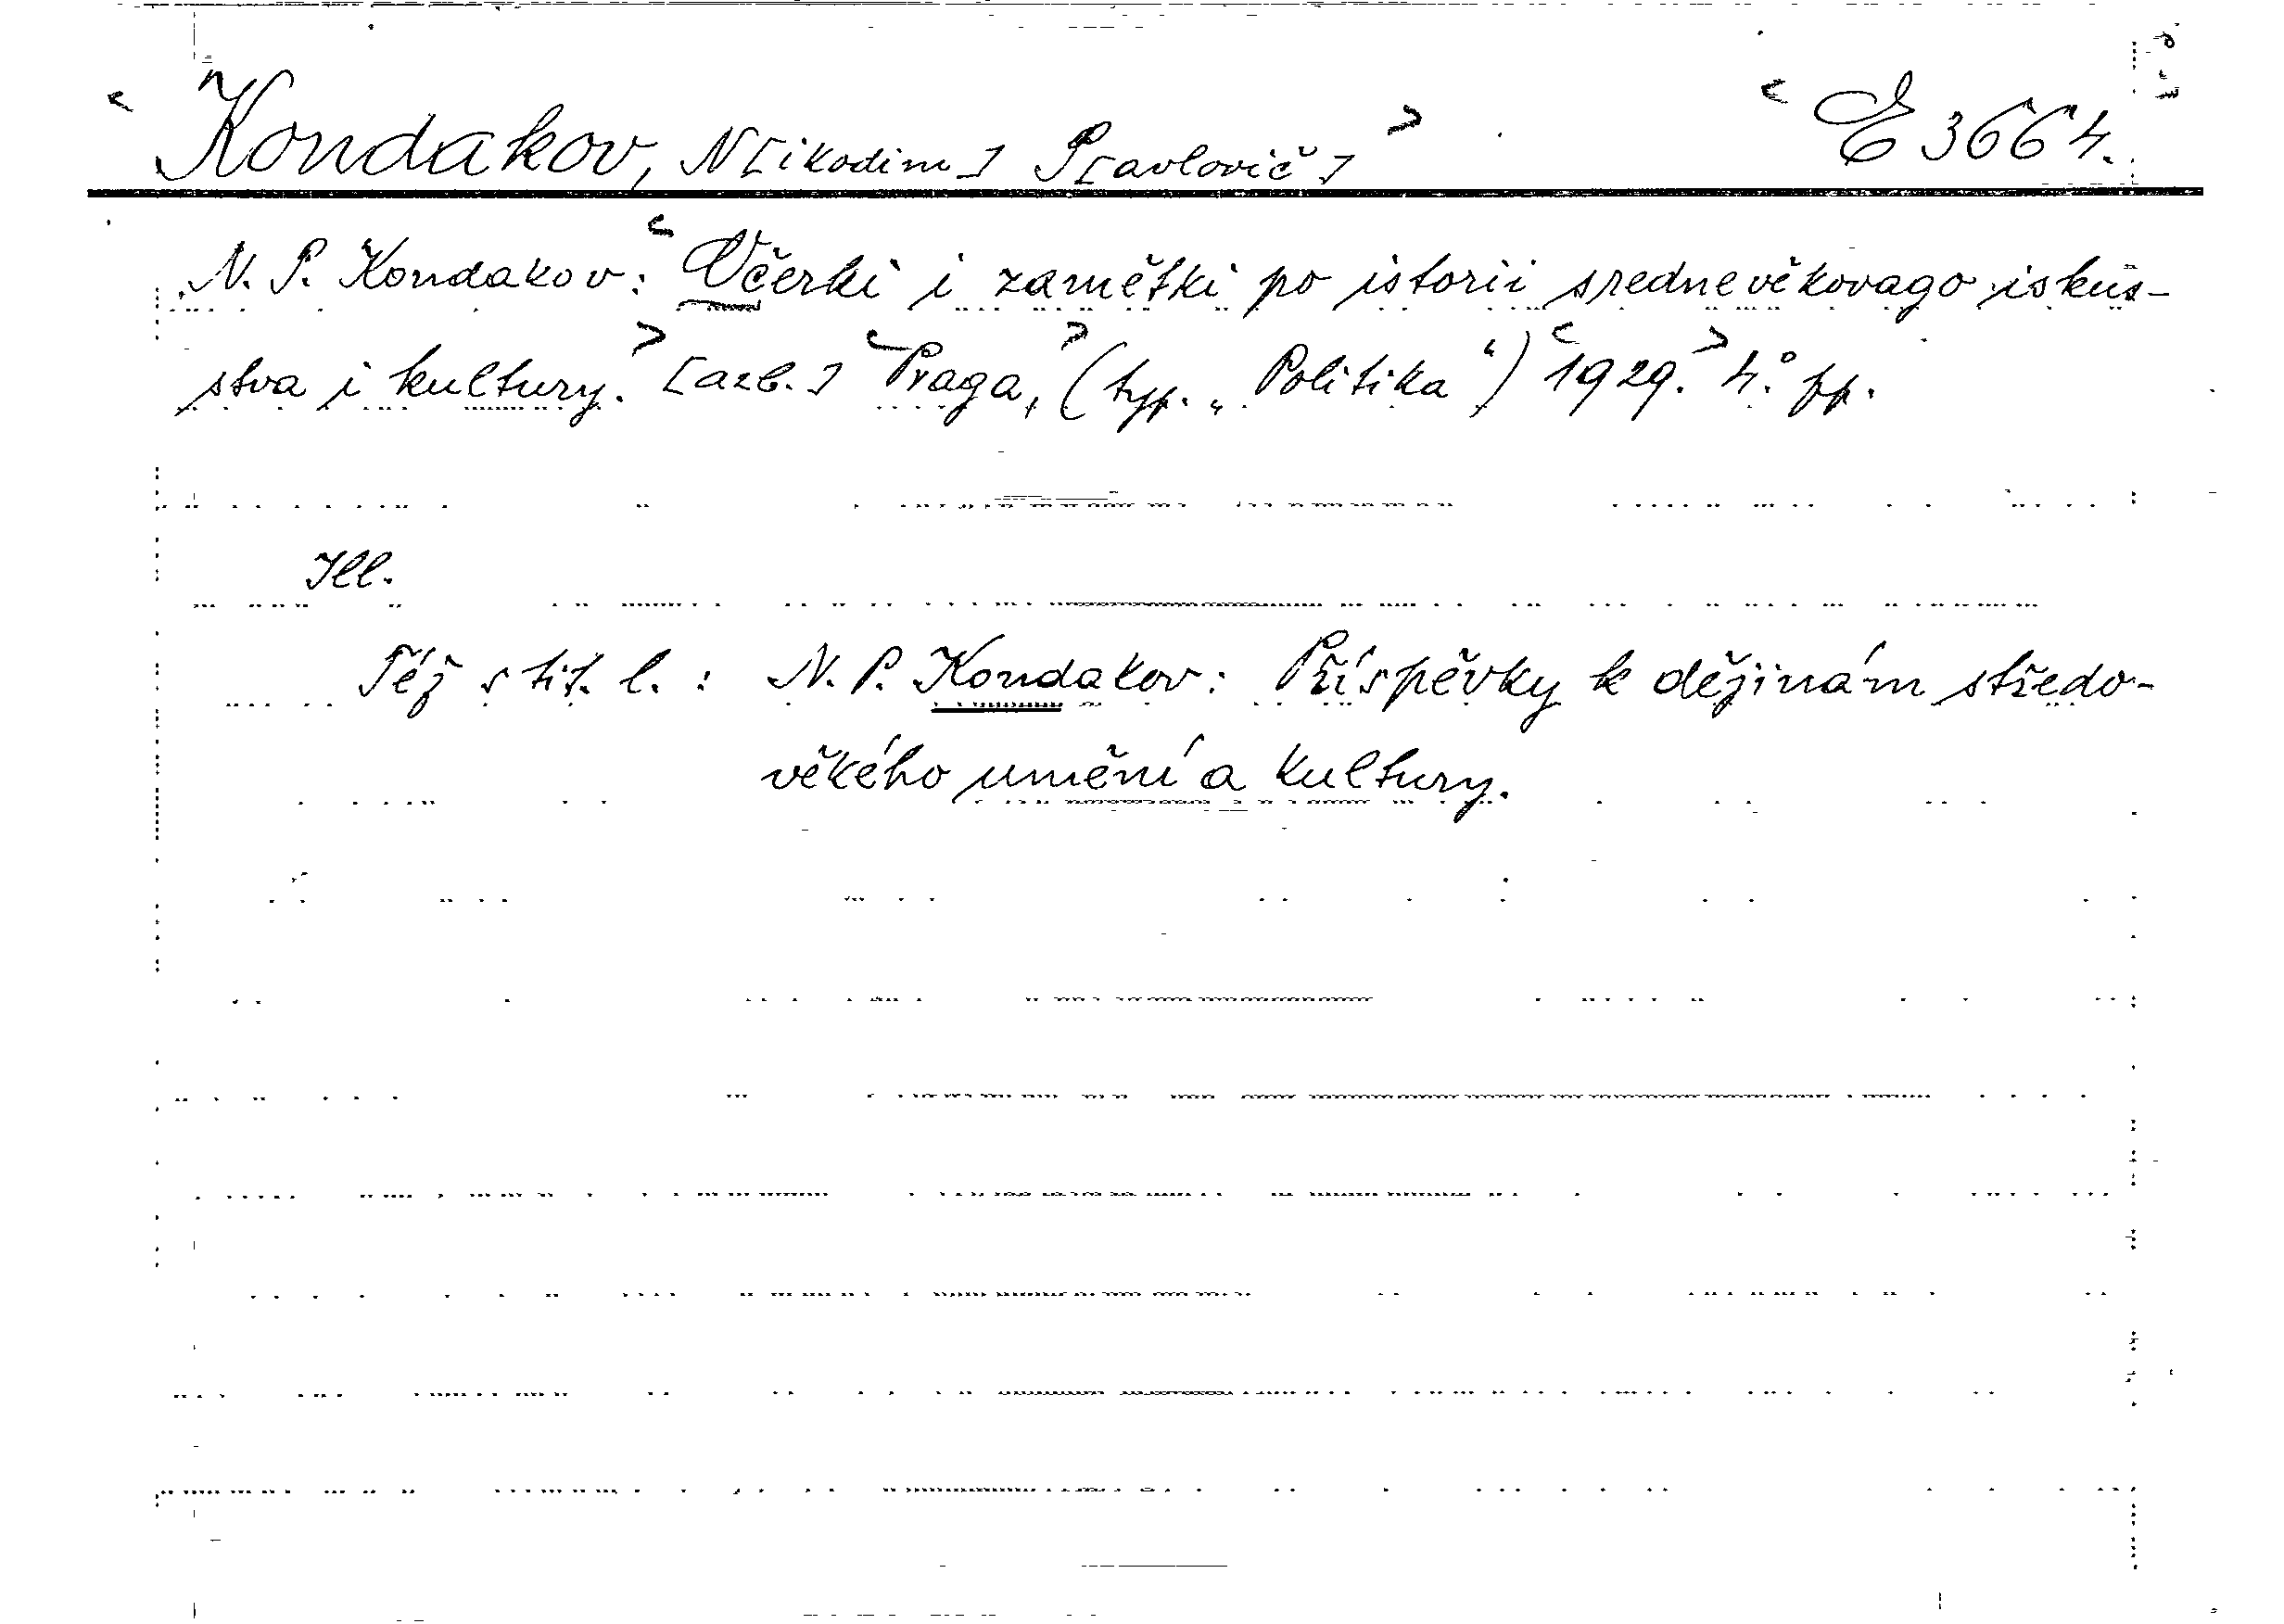 Kondakov, N[ikodim] P[avlovič] E 3664.
N. P. Kondakov: Očerki i zamětki po istorii srednevěkovago iskus-
stva i kultury. [azb.] Praga, (typ. „Politika“) 1929. 4.° pp.
Ill.
Též s tit. l.: N. P. Kondakov: Příspěvky k dějinám středo-
věkého umění a kultury.